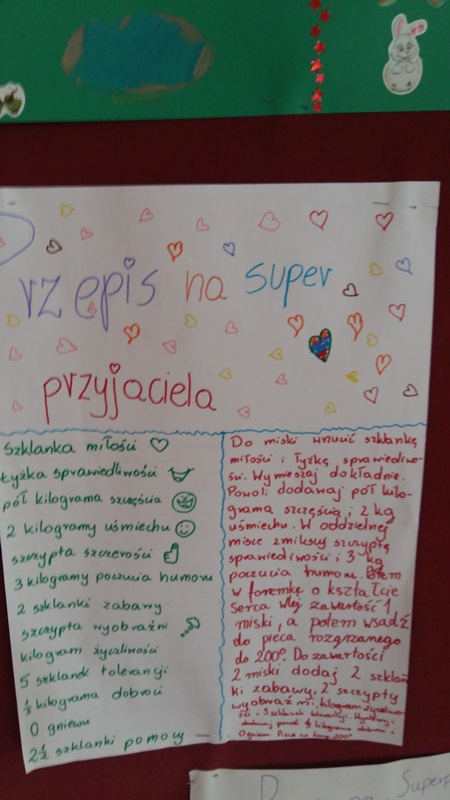 rzepis na super
przyjaciela
Szklanka miłości
Łyżka sprawiedliwości
pół kilograma szczęścia
2 kilogramy uśmiechu
szczypta szczerości
3 kilogramy poczucia humoru
2 szklanki zabawy
szczypta wyobraźni
kilogram życzliwości
5 szklanek tolerancji
½ kilograma dobroci
0 gniewu
2½ szklanki pomocy
Do miski wrzucić szklankę
miłości i łyżkę sprawiedliwo-
ści. Wymieszaj dokładnie.
Powoli dodawaj pół kilo-
grama szczęścia i 2 kg
uśmiechu. W oddzielnej
misce zmiksuj szczyptę
sprawiedliwości i 3 kg
poczucia humoru.
w foremkę o kształcie
Serca wlej zawartość 1
miski, a potem wsadź
do pieca rozgrzanego
do 200°. Do zawartości
2 miski dodaj 2 szklan
ki zabawy, 2 szczypty
wyobraźni, kilogram życzliwo
ści i 5 szklanek tolerancji.
½ kilograma dobroci i
0 gniewu. 200°
Super